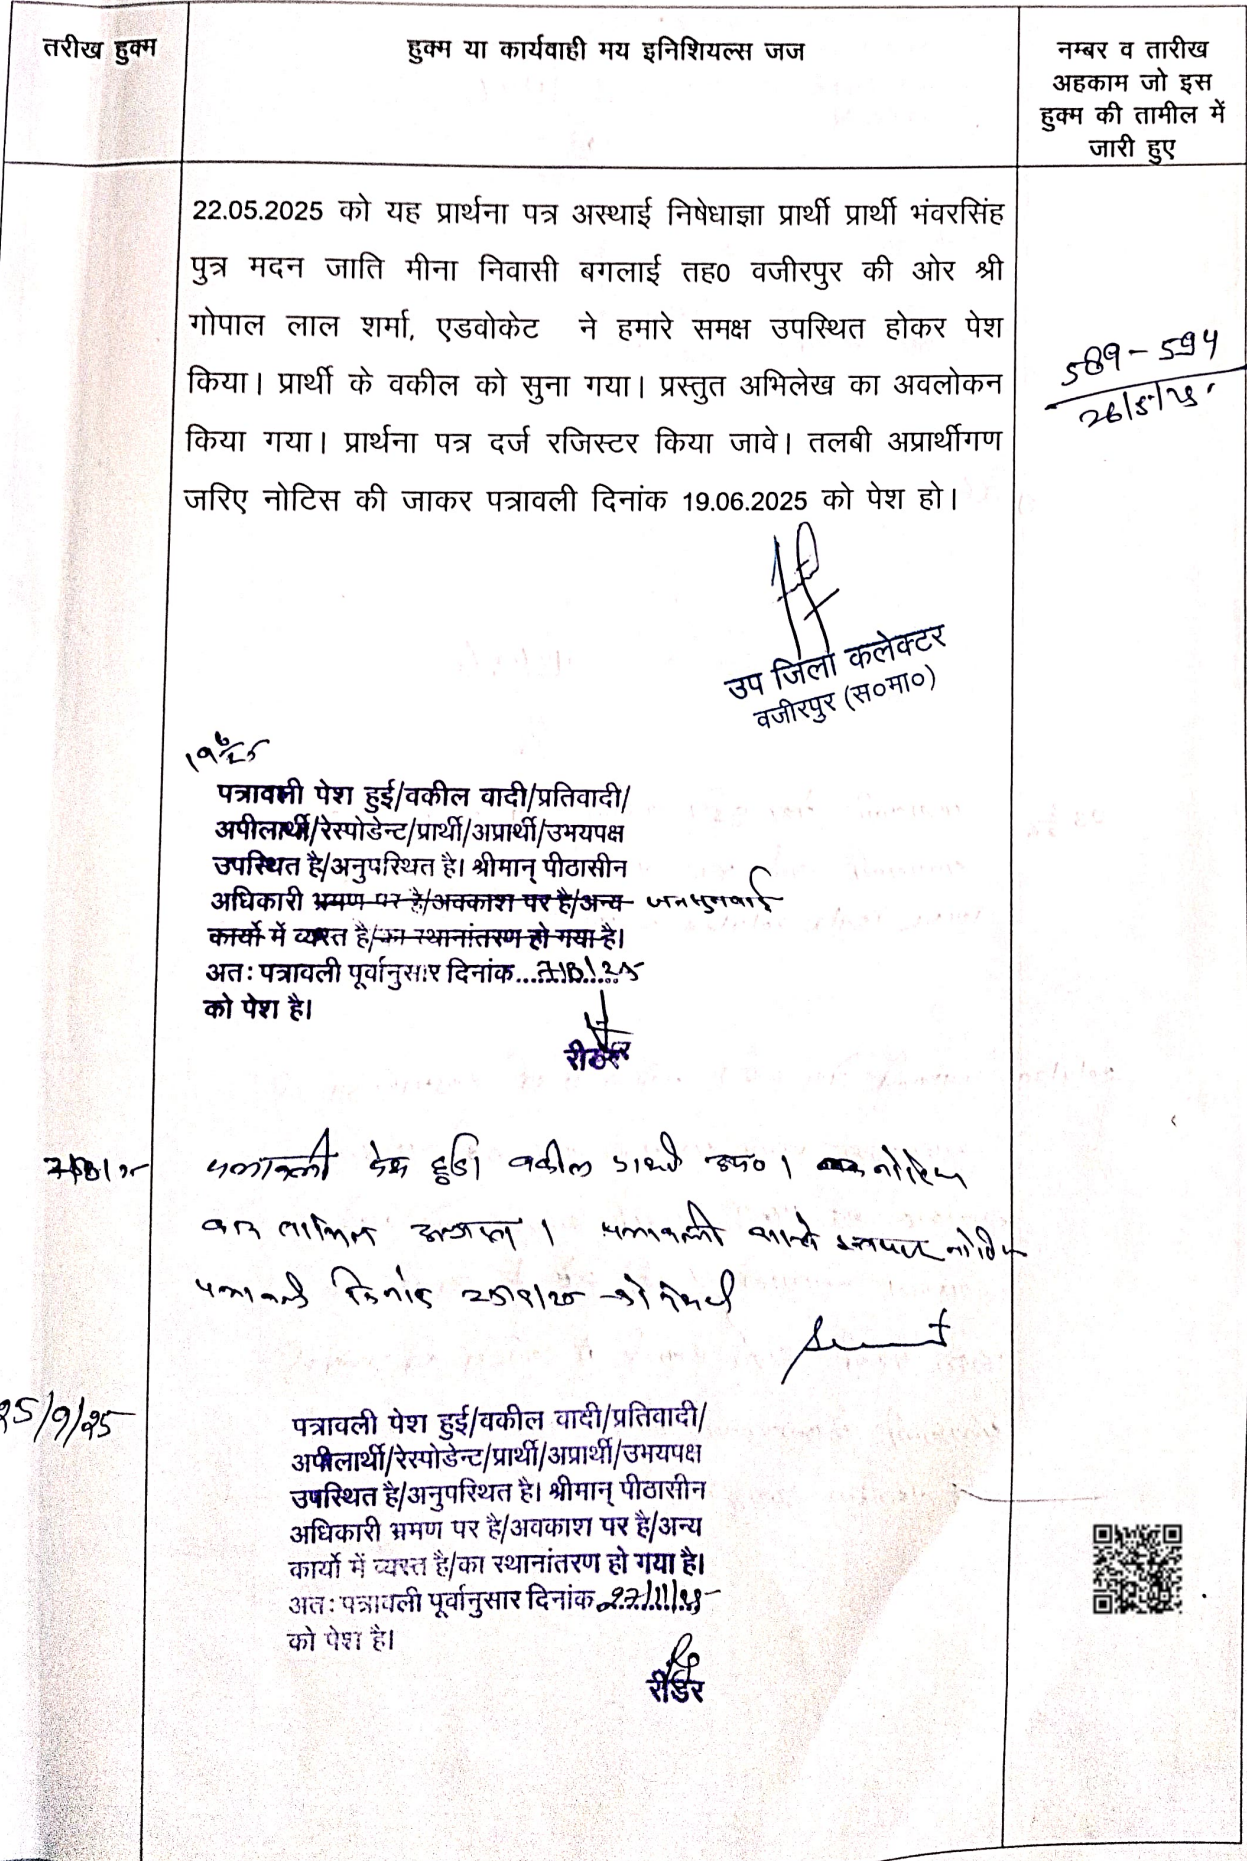 तरीख हुक्म
हुक्म या कार्यवाही मय इनिशियल्स जज
नम्बर व तारीख
अहकाम जो इस
हुक्म की तामील में
जारी हुए
22.05.2025 को यह प्रार्थना पत्र अस्थाई निषेधाज्ञा प्रार्थी प्रार्थी भंवरसिंह
पुत्र मदन जाति मीना निवासी बगलाई तह0 वजीरपुर की ओर श्री
गोपाल लाल शर्मा, एडवोकेट ने हमारे समक्ष उपस्थित होकर पेश
किया। प्रार्थी के वकील को सुना गया। प्रस्तुत अभिलेख का अवलोकन
किया गया। प्रार्थना पत्र दर्ज रजिस्टर किया जावे। तलबी अप्रार्थीगण
जरिए नोटिस की जाकर पत्रावली दिनांक 19.06.2025 को पेश हो।
589-594
26/5/25
उप जिला कलेक्टर
वजीरपुर (स०मा०)
19/6/25
पत्रावली पेश हुई/वकील वादी/प्रतिवादी/
अपीलार्थी/रेस्पोडेन्ट/प्रार्थी/अप्रार्थी/उभयपक्ष
उपस्थित है/अनुपस्थित है। श्रीमान् पीठासीन
अधिकारी भ्रमण पर है/अवकाश पर है/अन्य जनसुनवाई
कार्यो में व्यस्त है/का स्थानांतरण हो गया है।
अतः पत्रावली पूर्वानुसार दिनांक...7/8/25
को पेश है।
रीडर
7/8/25 पत्रावली पेश हुई। वकील प्रार्थी उप०। नोटिस
बाद तामिल । पत्रावली वास्ते नोटिस
पत्रावली दिनांक 25/9/25 को पेश हो
25/9/25
पत्रावली पेश हुई/वकील वादी/प्रतिवादी/
अपीलार्थी/रेस्पोडेन्ट/प्रार्थी/अप्रार्थी/उभयपक्ष
उपस्थित है/अनुपस्थित है। श्रीमान् पीठासीन
अधिकारी भ्रमण पर है/अवकाश पर है/अन्य
कार्यो में व्यस्त है/का स्थानांतरण हो गया है।
अतः पत्रावली पूर्वानुसार दिनांक 27/11/25
को पेश है।
रीडर